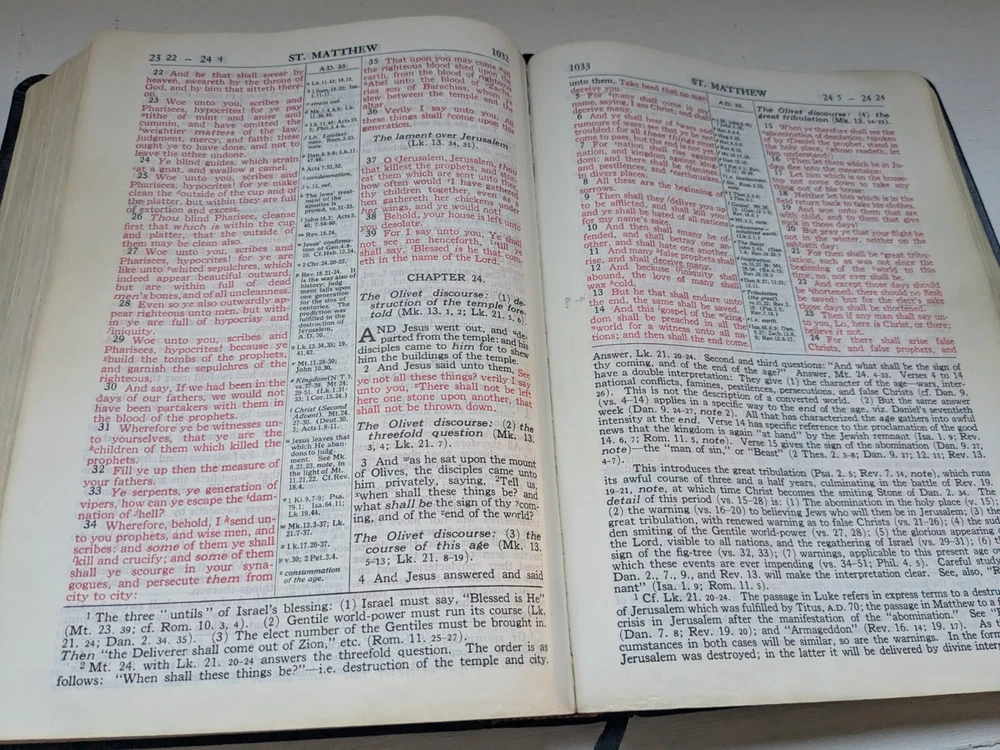 23 22 – 24 4
ST. MATTHEW
1032
22 And he that shall swear by
heaven, sweareth by the throne of
God, and by him that sitteth there-
on.
23 Woe unto you, scribes and
Pharisees, hypocrites! for ye pay
tithe of mint and anise and
cummin, and have omitted the
weightier matters of the law,
judgment, mercy, and faith: these
ought ye to have done, and not to
leave the other undone.
24 Ye blind guides, which strain
at a gnat, and swallow a camel.
25 Woe unto you, scribes and
Pharisees, hypocrites! for ye make
clean the outside of the cup and of
the platter, but within they are full
of extortion and excess.
26 Thou blind Pharisee, cleanse
first that which is within the cup
and platter, that the outside of
them may be clean also.
27 Woe unto you, scribes and
Pharisees, hypocrites! for ye are
like unto whited sepulchres, which
indeed appear beautiful outward,
but are within full of dead
men's bones, and of all uncleanness.
28 Even so ye also outwardly ap-
pear righteous unto men, but with-
in ye are full of hypocrisy and
iniquity.
29 Woe unto you, scribes and
Pharisees, hypocrites! because ye
build the tombs of the prophets,
and garnish the sepulchres of the
righteous,
30 And say, If we had been in the
days of our fathers, we would not
have been partakers with them in
the blood of the prophets.
31 Wherefore ye be witnesses un-
to yourselves, that ye are the
children of them which killed the
prophets.
32 Fill ye up then the measure of
your fathers.
33 Ye serpents, ye generation of
vipers, how can ye escape the dam-
nation of hell?
34 Wherefore, behold, I send un-
to you prophets, and wise men, and
scribes: and some of them ye shall
kill and crucify; and some of them
shall ye scourge in your syna-
gogues, and persecute them from
city to city:
A.D. 33.
condemnation.
v. 15, ref.
Rev. 16.24.
2 Chr.24.20-22.
Mt.11.28-30;
John 10.30.
Kingdom (N.T.)
Christ (Second
Advent). Mt.24.
27-30. (Deut.30.
3; Acts 1.9-11.
Jesus leaves that
which He aban-
dons to judg-
ment. See Mk.
8.21,23, note, in
the light of Mt.
11.21,22. Cf.Rev.
18.4.
1 Ki.9.7-9; Psa.
79.1; Isa.64.11;
Lk.19.44.
Mk.13.3-37; Lk.
21.7-37.
1 Lk.17.20-37.
v.30; 2 Pet.3.4.
consummation
of the age.
35 That upon you may come all
the righteous blood shed upon the
earth, from the blood of righteous
Abel unto the blood of Zacha-
rias son of Barachias, whom ye
slew between the temple and the
altar.
36 Verily I say unto you, All
these things shall come upon this
generation.
The lament over Jerusalem
(Lk. 13. 34, 35).
37 O Jerusalem, Jerusalem, thou
that killest the prophets, and stonest
them which are sent unto thee,
how often would I have gathered
thy children together, even as a
hen gathereth her chickens under
her wings, and ye would not!
38 Behold, your house is left unto
you desolate.
39 For I say unto you, Ye shall
not see me henceforth, till ye
shall say, Blessed is he that cometh
in the name of the Lord.
CHAPTER 24.
The Olivet discourse: (1) de-
struction of the temple fore-
told (Mk. 13. 1, 2; Lk. 21. 5, 6).
AND Jesus went out, and de-
parted from the temple: and his
disciples came to him for to shew
him the buildings of the temple.
2 And Jesus said unto them, See
ye not all these things? verily I say
unto you, There shall not be left
here one stone upon another, that
shall not be thrown down.
The Olivet discourse: (2) the
threefold question (Mk. 13.
3, 4; Lk. 21. 7).
3 And as he sat upon the mount
of Olives, the disciples came unto
him privately, saying, Tell us,
when shall these things be? and
what shall be the sign of thy com-
ing, and of the end of the world?
The Olivet discourse: (3) the
course of this age (Mk. 13.
5-13; Lk. 21. 8-19).
4 And Jesus answered and said
1 The three "untils" of Israel's blessing: (1) Israel must say, "Blessed is He"
(Mt. 23. 39; cf. Rom. 10. 3, 4). (2) Gentile world-power must run its course (Lk.
21. 24; Dan. 2. 34. 35). (3) The elect number of the Gentiles must be brought in.
Then "the Deliverer shall come out of Zion," etc. (Rom. 11. 25-27).
2 Mt. 24. with Lk. 21. 20-24 answers the threefold question. The order is as
follows: "When shall these things be?"—i.e. destruction of the temple and city.
1033
ST. MATTHEW
24 5 – 24 24
unto them, Take heed that no man
deceive you.
5 For many shall come in my
name, saying, I am Christ; and shall
deceive many.
6 And ye shall hear of wars and
rumours of wars: see that ye be not
troubled: for all these things must
come to pass, but the end is not yet.
7 For nation shall rise against
nation, and kingdom against
kingdom: and there shall be famines,
and pestilences, and earthquakes,
in divers places.
8 All these are the beginning of
sorrows.
9 Then shall they deliver you up
to be afflicted, and shall kill you:
and ye shall be hated of all nations
for my name's sake.
10 And then shall many be of-
fended, and shall betray one an-
other, and shall hate one another.
11 And many false prophets shall
rise, and shall deceive many.
12 And because iniquity shall
abound, the love of many shall
wax cold.
? →
13 But he that shall endure unto
the end, the same shall be saved.
14 And this gospel of the king-
dom shall be preached in all the
world for a witness unto all na-
tions; and then shall the end come.
A.D. 33.
The Olivet discourse: (4) the
great tribulation (Mk. 13. 14-23).
15 When ye therefore shall see the
abomination of desolation, spoken
of by Daniel the prophet, stand in
the holy place, (whoso readeth, let
him understand:)
16 Then let them which be in Ju-
dæa flee into the mountains:
17 Let him which is on the house-
top not come down to take any
thing out of his house:
18 Neither let him which is in the
field return back to take his clothes.
19 And woe unto them that are
with child, and to them that give
suck in those days!
20 But pray ye that your flight be
not in the winter, neither on the
sabbath day:
21 For then shall be great tribula-
tion, such as was not since the
beginning of the world to this
time, no, nor ever shall be.
22 And except those days should
be shortened, there should no flesh
be saved: but for the elect's sake
those days shall be shortened.
23 Then if any man shall say un-
to you, Lo, here is Christ, or there;
believe it not.
24 For there shall arise false
Christs, and false prophets, and
Answer, Lk. 21. 20-24. Second and third questions: "And what shall be the sign of
thy coming, and of the end of the age?" Answer, Mt. 24. 4-33. Verses 4 to 14
have a double interpretation: They give (1) the character of the age—wars, inter-
national conflicts, famines, pestilences, persecutions, and false Christs (cf. Dan. 9.
26). This is not the description of a converted world. (2) But the same answer
(vs. 4-14) applies in a specific way to the end of the age, viz. Daniel's seventieth
week (Dan. 9. 24-27, note 2). All that has characterized the age gathers into awful
intensity at the end. Verse 14 has specific reference to the proclamation of the good
news that the kingdom is again "at hand" by the Jewish remnant (Isa. 1. 9; Rev.
14. 6, 7; Rom. 11. 5, note). Verse 15 gives the sign of the abomination (Dan. 9. 27;
note)—the "man of sin," or "Beast" (2 Thes. 2. 3-8; Dan. 9. 27; 12. 11; Rev. 13.
4-7).
This introduces the great tribulation (Psa. 2. 5; Rev. 7. 14, note), which runs
its awful course of three and a half years, culminating in the battle of Rev. 19.
19-21, note, at which time Christ becomes the smiting Stone of Dan. 2. 34. The
detail of this period (vs. 15-28) is: (1) The abomination in the holy place (v. 15);
(2) the warning (vs. 16-20) to believing Jews who will then be in Jerusalem; (3) the
great tribulation, with renewed warning as to false Christs (vs. 21-26); (4) the sud-
den smiting of the Gentile world-power (vs. 27, 28); (5) the glorious appearing of
the Lord, visible to all nations, and the regathering of Israel (vs. 29-31); (6) the
sign of the fig-tree (vs. 32, 33); (7) warnings, applicable to this present age over
which these events are ever impending (vs. 34-51; Phil. 4. 5). Careful study of
Dan. 2., 7., 9., and Rev. 13. will make the interpretation clear. See, also, "Rem-
nant" (Isa. 1. 9; Rom. 11. 5).
1 Cf. Lk. 21. 20-24. The passage in Luke refers in express terms to a destruc-
of Jerusalem which was fulfilled by Titus, A.D. 70; the passage in Matthew to a f
crisis in Jerusalem after the manifestation of the "abomination." See
(Dan. 7. 8; Rev. 19. 20); and "Armageddon" (Rev. 16. 14; 19. 17). As t
cumstances in both cases will be similar, so are the warnings. In the form
Jerusalem was destroyed; in the latter it will be delivered by divine inter